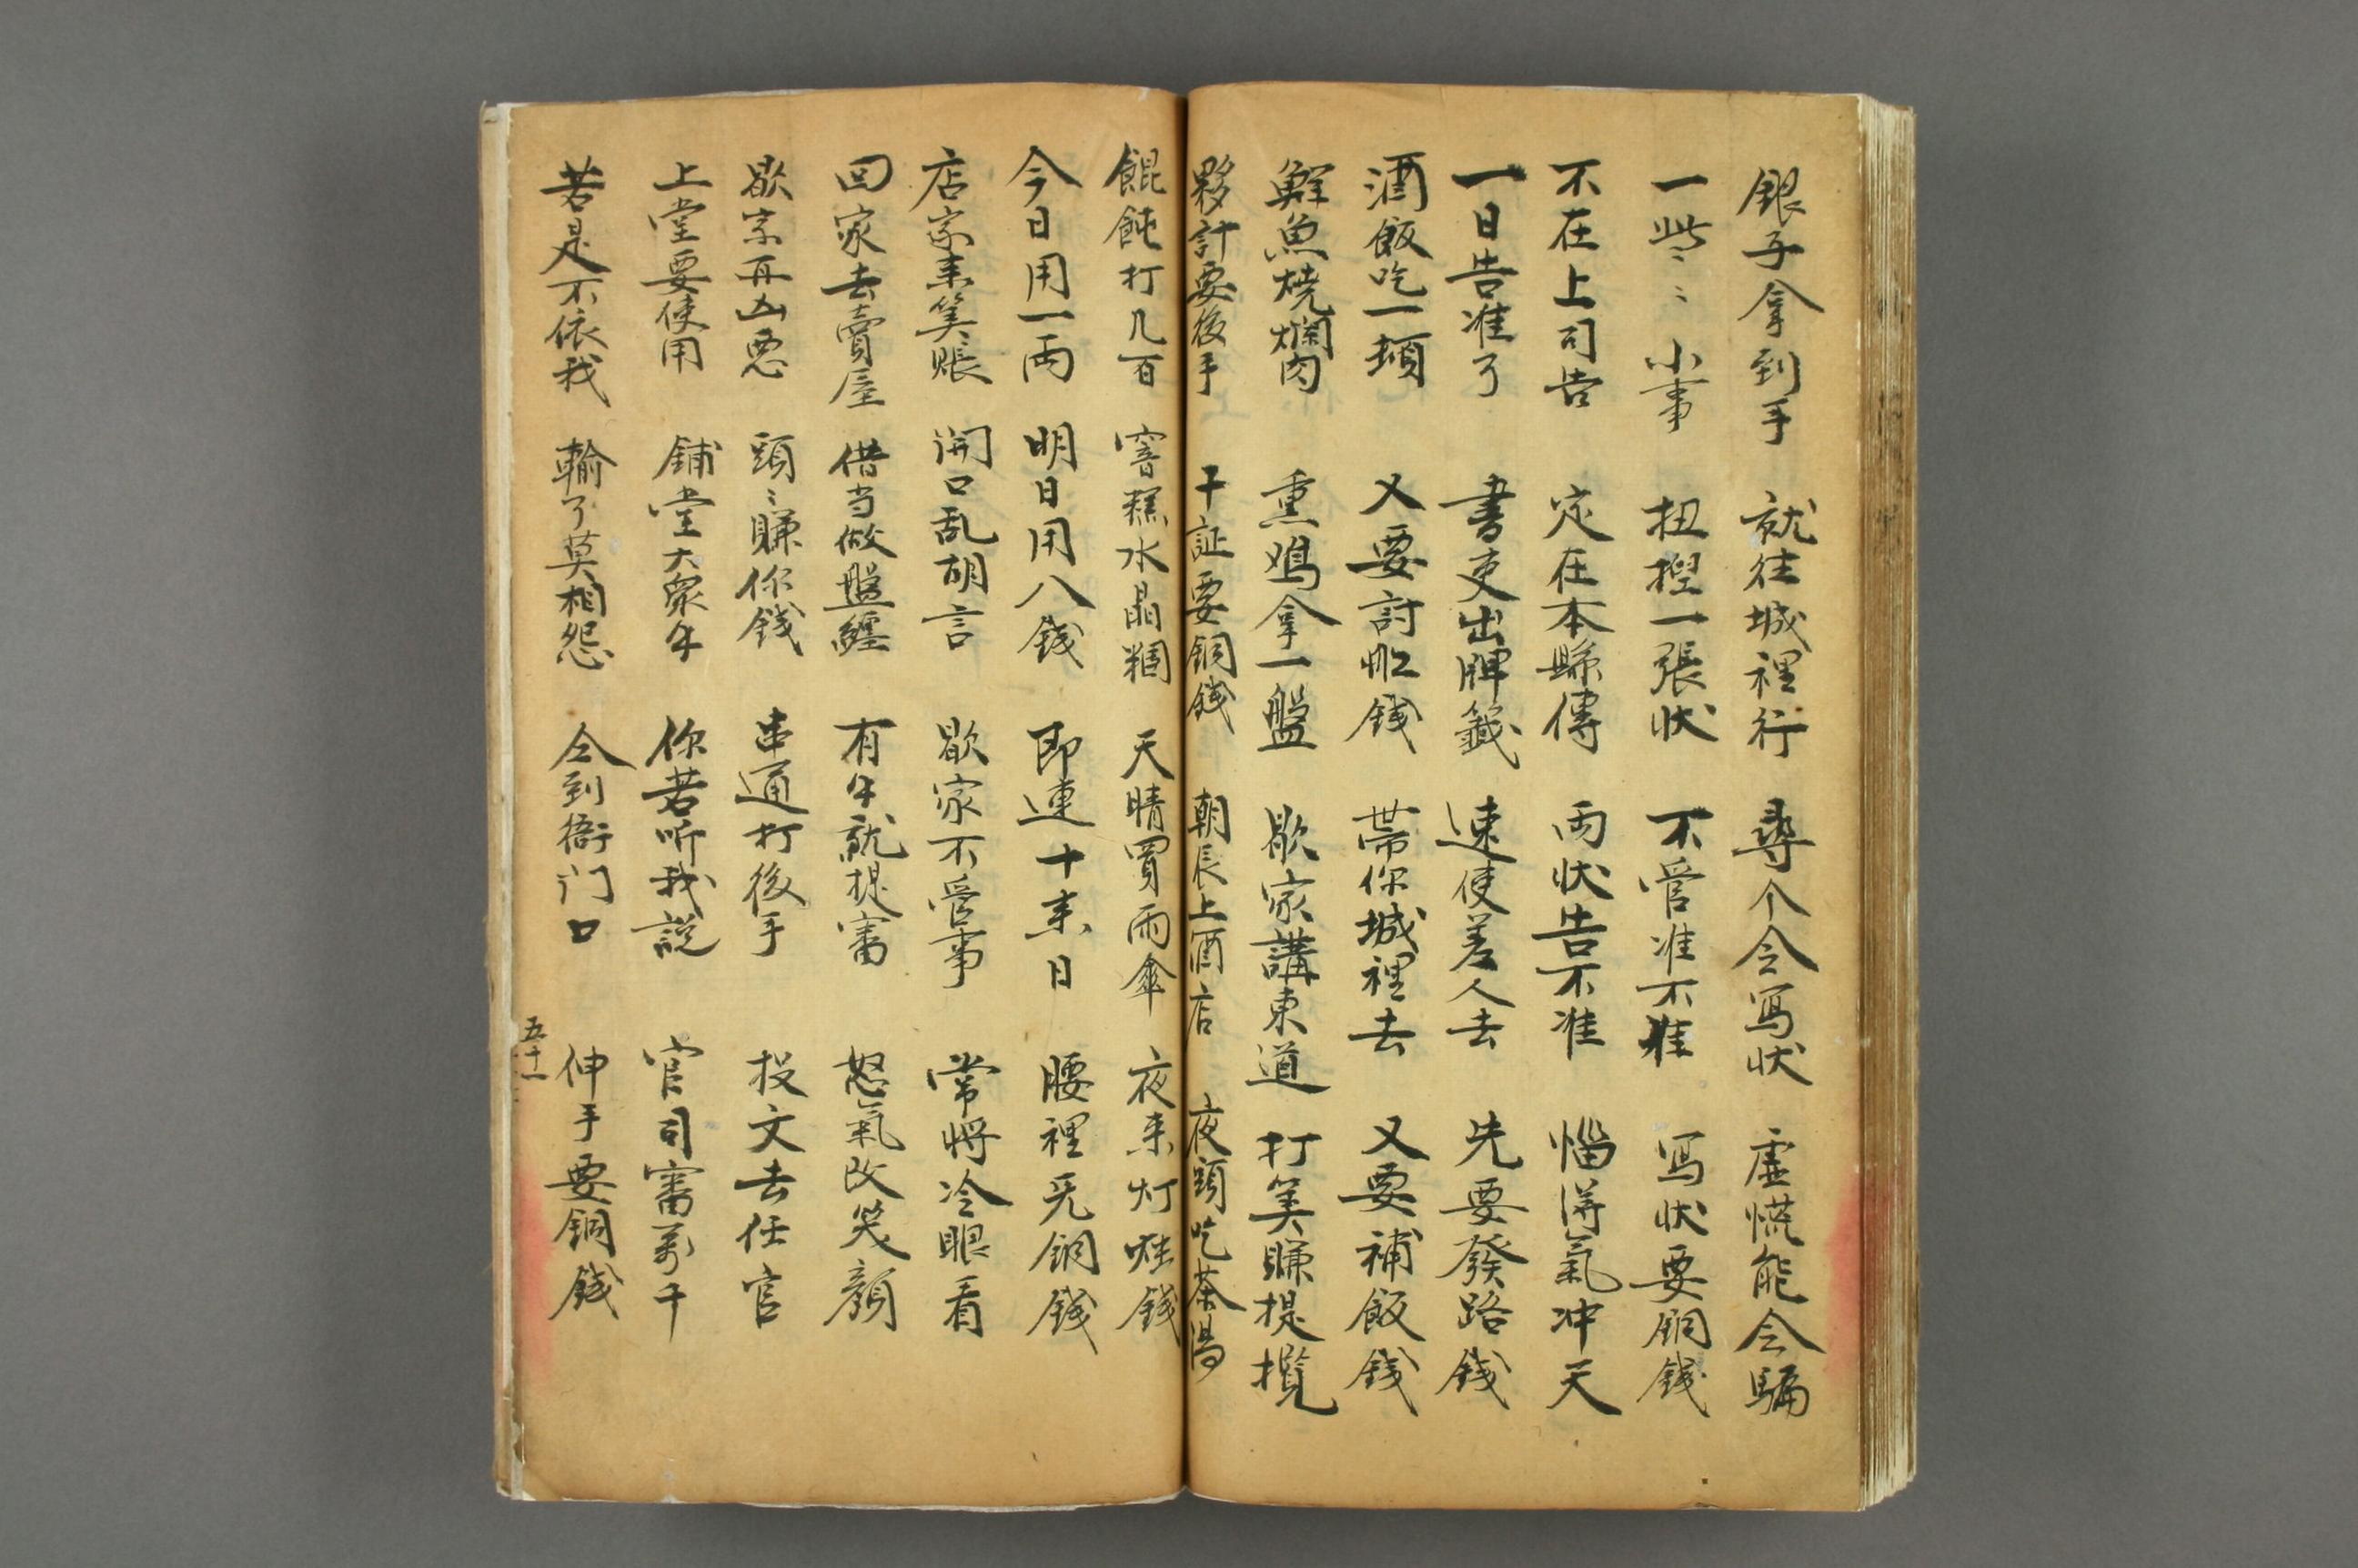 銀子拿到手 就往城裡行 尋个会写状 虚慌能会騙
一些〻小事 扭捏一張状 不管准不准 写状要銅錢
不在上司告 定在本縣傳 両状告不准 惱得氣冲天
一日告准了 書吏出牌籤 速使差人去 先要發路錢
酒飯吃一頓 又要討 錢 帶你城裡去 又要補飯錢
鮮魚燒爛肉 熏鳮拿一盤 歇家講東道 打筭賺提攬
夥計要後手 干証要銅錢 朝辰上酒店 夜頭吃茶湯
餛飩打几百 糕水晶糰 天晴買雨傘 夜来灯 錢
今日用一両 明日用八錢 即連十来日 腰裡旡銅錢
店家来筭賬 開口乱胡言 歇家不管事 常将冷眼看
回家去賣屋 借当做盤纏 有牛就提審 怒氣改笑顔
歇家再凶惡 頭〻賺你錢 串通打後手 投文去任官
上堂要使用 鋪堂大衆牛 你若听我説 官司審萬千
若是不依我 輸了莫相怨 仝到衙门口 伸手要銅錢
五十一